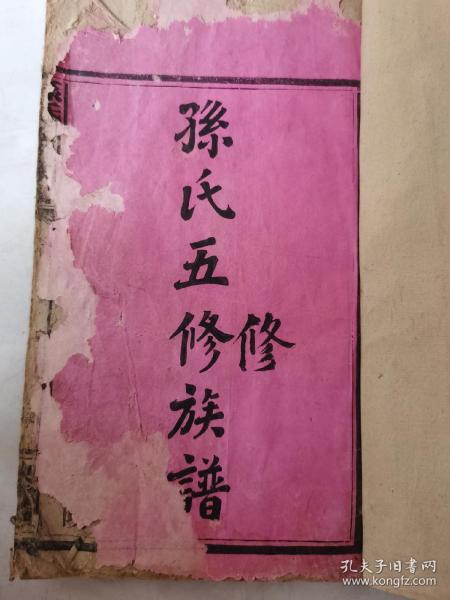 孫氏五修族譜
修
孔夫子旧书网
www.kongfz.com